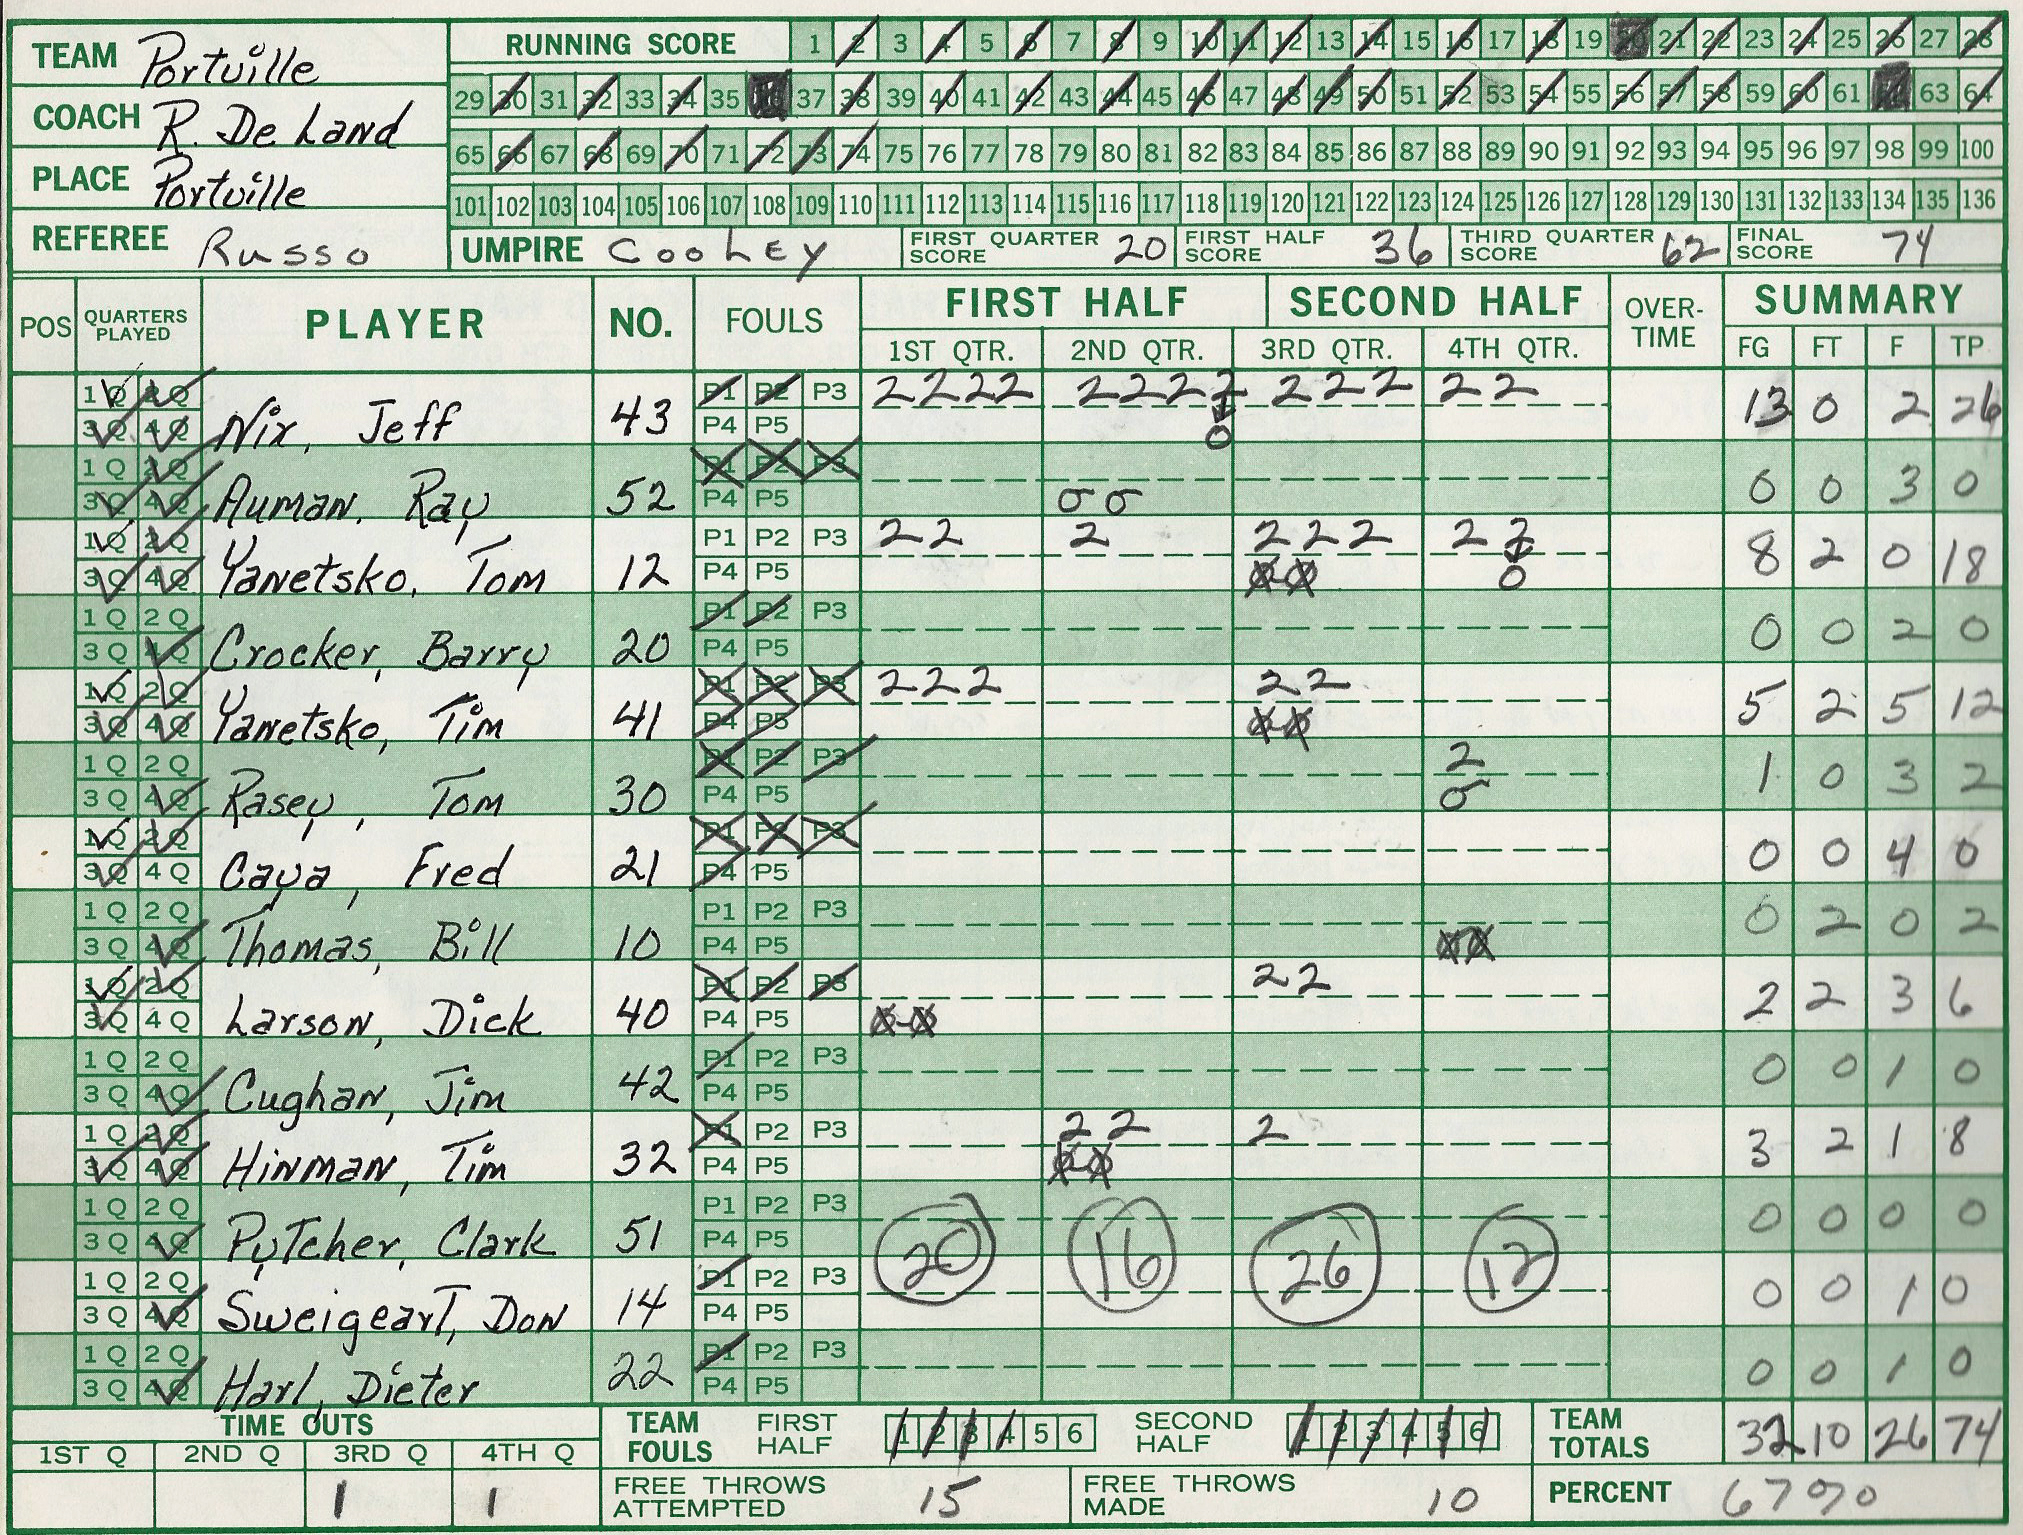 TEAM Portville
COACH R. De Land
PLACE Portville
REFEREE Russo
RUNNING SCORE 1 2 3 4 5 6 7 8 9 10 11 12 13 14 15 16 17 18 19 20 21 22 23 24 25 26 27 28
29 30 31 32 33 34 35 36 37 38 39 40 41 42 43 44 45 46 47 48 49 50 51 52 53 54 55 56 57 58 59 60 61 62 63 64
65 66 67 68 69 70 71 72 73 74 75 76 77 78 79 80 81 82 83 84 85 86 87 88 89 90 91 92 93 94 95 96 97 98 99 100
101 102 103 104 105 106 107 108 109 110 111 112 113 114 115 116 117 118 119 120 121 122 123 124 125 126 127 128 129 130 131 132 133 134 135 136
UMPIRE Cooley FIRST QUARTER SCORE 20 FIRST HALF SCORE 36 THIRD QUARTER SCORE 62 FINAL SCORE 74
POS QUARTERS PLAYED PLAYER NO. FOULS FIRST HALF SECOND HALF OVER-TIME SUMMARY
1ST QTR. 2ND QTR. 3RD QTR. 4TH QTR. FG FT F TP
1Q 2Q P1 P2 P3 2222 2222 222 22
3Q 4Q Nix, Jeff 43 P4 P5 0 13 0 2 26
1Q 2Q P1 P2 P3
3Q 4Q Auman, Ray 52 P4 P5 0 0 0 0 3 0
1Q 2Q P1 P2 P3 22 2 222 22
3Q 4Q Yanetsko, Tom 12 P4 P5 0 0 0 8 2 0 18
1Q 2Q P1 P2 P3
3Q 4Q Crocker, Barry 20 P4 P5 0 0 2 0
1Q 2Q P1 P2 P3 222 22
3Q 4Q Yanetsko, Tim 41 P4 P5 0 0 5 2 5 12
1Q 2Q P1 P2 P3 2
3Q 4Q Rasey, Tom 30 P4 P5 0 1 0 3 2
1Q 2Q P1 P2 P3
3Q 4Q Caya, Fred 21 P4 P5 0 0 4 0
1Q 2Q P1 P2 P3
3Q 4Q Thomas, Bill 10 P4 P5 0 0 0 2 0 2
1Q 2Q P1 P2 P3 22
3Q 4Q Larson, Dick 40 P4 P5 0-0 2 2 3 6
1Q 2Q P1 P2 P3
3Q 4Q Cughan, Jim 42 P4 P5 0 0 1 0
1Q 2Q P1 P2 P3 22 2
3Q 4Q Hinman, Tim 32 P4 P5 0-0 3 2 1 8
1Q 2Q P1 P2 P3
3Q 4Q Pytcher, Clark 51 P4 P5 20 16 26 12 0 0 0 0
1Q 2Q P1 P2 P3
3Q 4Q Sweigeart, Don 14 P4 P5 0 0 1 0
1Q 2Q P1 P2 P3
3Q 4Q Harl, Dieter 22 P4 P5 0 0 1 0
TIME OUTS TEAM FOULS FIRST HALF 1 2 3 4 5 6 SECOND HALF 1 2 3 4 5 6 TEAM TOTALS 32 10 26 74
1ST Q 2ND Q 3RD Q 4TH Q
1 1 FREE THROWS ATTEMPTED 15 FREE THROWS MADE 10 PERCENT 67%